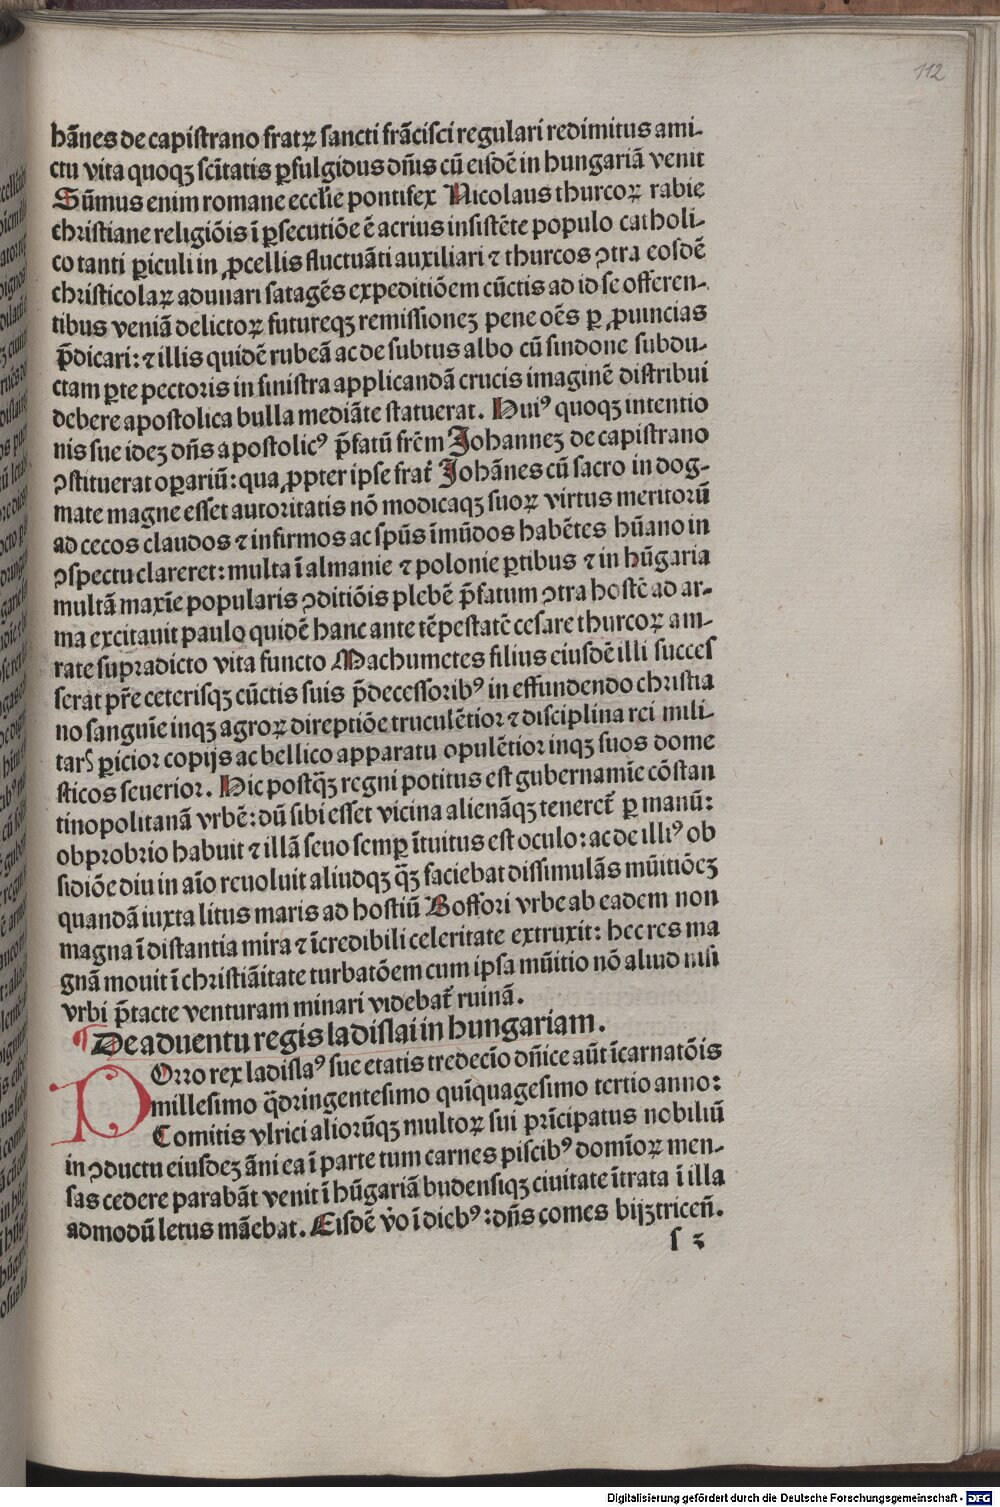 112
hãnes de capistrano fratꝝ sancti frãcisci regulari redimitus ami-
ctu vita quoqꝫ scĩtatis ꝑfulgidus dñis cũ eisdẽ in hungariã venit
Sũmus enim romane eccl̃ie pontifex Nicolaus thurcoꝝ rabie
christiane religiõis ĩ ꝑsecutiõe ẽ acrius insistẽte populo catholi-
co tanti ꝑiculi in ꝓcellis fluctuãti auxiliari ⁊ thurcos ꝯtra eosdẽ
christicolaꝝ adunari satagẽs expeditiõem cũctis ad id se offeren-
tibus veniã delictoꝝ futureqꝫ remissioneꝫ pene oẽs ꝑ ꝓuincias
p̃dicari: ⁊ illis quidẽ rubeã ac de subtus albo cũ sindone subdu-
ctam ꝑte pectoris in sinistra applicandã crucis imaginẽ distribui
debere apostolica bulla mediãte statuerat. Huiꝰ quoqꝫ intentio
nis sue ideꝫ dñs apostolicꝰ p̃fatũ frẽm Johanneꝫ de capistrano
ꝯstituerat oꝑariũ: qua ꝓpter ipse frat̃ Johãnes cũ sacro in dog-
mate magne esset autoritatis nõ modicaqꝫ suoꝝ virtus meritorũ
ad cecos claudos ⁊ infirmos ac spũs ĩmũdos habẽtes hũano in
ꝯspectu clareret: multa ĩ almanie ⁊ polonie ꝑtibus ⁊ in hũgaria
multã maxĩe popularis ꝯditiõis plebẽ p̃fatum ꝯtra hostẽ ad ar-
ma excitauit paulo quidẽ hanc ante tẽpestatẽ cesare thurcoꝝ am-
rate supradicto vita functo Machumetes filius eiusdẽ illi succes
serat pr̃e ceterisqꝫ cũctis suis p̃decessoribꝰ in effundendo christia
no sanguĩe inqꝫ agroꝝ direptiõe truculẽtior ⁊ disciplina rei mili-
tarꝭ ꝑicior copijs ac bellico apparatu opulẽtior inqꝫ suos dome
sticos seuerior. Hic postq̃ꝫ regni potitus est gubernamĩe cõstan
tinopolitanã vrbẽ: dũ sibi esset vicina alienãqꝫ teneret̃ ꝑ manũ:
obprobrio habuit ⁊ illã seuo semꝑ ĩtuitus est oculo: ac de illiꝰ ob
sidiõe diu in aĩo reuoluit aliudqꝫ q̃ꝫ faciebat dissimulãs mũitiõeꝫ
quandã iuxta litus maris ad hostiũ Boffori vrbe ab eadem non
magna ĩ distantia mira ⁊ ĩcredibili celeritate extruxit: hec res ma
gnã mouit ĩ christiãitate turbatõem cum ipsa mũitio nõ aliud nisi
vrbi p̃tacte venturam minari videbat̃ ruinã.
¶ De aduentu regis ladislai in hungariam.
POrro rex ladislaꝰ sue etatis tredecĩo dñice aũt ĩcarnatõis
millesimo q̃dringentesimo quĩquagesimo tertio anno:
Comitis vlrici aliorũqꝫ multoꝝ sui prĩcipatus nobiliũ
in ꝯductu eiusdeꝫ ãni ea ĩ parte tum carnes piscibꝰ domĩoꝝ men-
sas cedere parabãt venit ĩ hũgariã budensiqꝫ ciuitate ĩtrata ĩ illa
admodũ letus mãebat. Eisdẽ v̇o ĩ diebꝰ: dñs comes bijꝫtriceñ.
s ꝫ
Digitalisierung gefördert durch die Deutsche Forschungsgemeinschaft - DFG